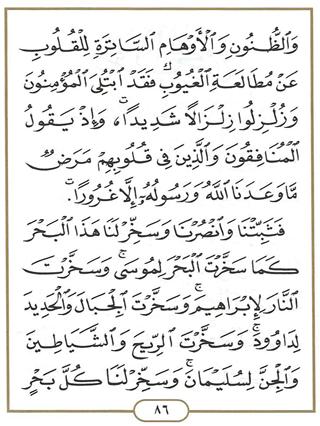 وَالظُّنُونِ وَالْأَوْهَامِ السَّاتِرَةِ لِلْقُلُوبِ
عَنْ مُطَالَعَةِ الْغُيُوبِ فَقَدِ ابْتُلِيَ الْمُؤْمِنُونَ
وَزُلْزِلُوا زِلْزَالًا شَدِيدًا، وَإِذْ يَقُولُ
الْمُنَافِقُونَ وَالَّذِينَ فِي قُلُوبِهِمْ مَرَضٌ
مَّا وَعَدَنَا اللَّهُ وَرَسُولُهُ إِلَّا غُرُورًا.
فَثَبِّتْنَا وَانْصُرْنَا وَسَخِّرْ لَنَا هَذَا الْبَحْرَ
كَمَا سَخَّرْتَ الْبَحْرَ لِمُوسَى وَسَخَّرْتَ
النَّارَ لِإِبْرَاهِيمَ وَسَخَّرْتَ الْجِبَالَ وَالْحَدِيدَ
لِدَاوُودَ وَسَخَّرْتَ الرِّيحَ وَالشَّيَاطِينَ
وَالْجِنَّ لِسُلَيْمَانَ وَسَخِّرْ لَنَا كُلَّ بَحْرٍ
٨٦